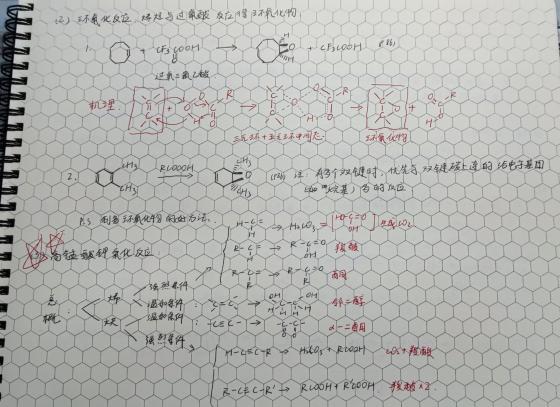 (2) 环氧化反应: 烯烃与过氧酸反应得环氧化物
1. + CF₃COOH → + CF₃COOH (顺)
过氧三氟乙酸
机理:
三元环+五元环中间态
环氧化物
2. CH₃ CH₃ RCOOOH → CH₃ CH₃ 注: 有多个双键时, 优先与双键碳上连的给电子基团
(如 烷基) 多的反应
P.S 制备环氧化物的好方法.
高锰酸钾氧化反应:
H-C= H → H₂CO₃ = [HO-C=O OH] 生成CO₂
R-C= H → R-C=O OH 羧酸
R-C= R → R-C=O R 酮
总概: 烯 强烈条件
温和条件 -C=C- → OH OH -C-C- 邻二醇
炔 温和条件 -C≡C- → -C-C- O O α-二酮
强烈条件
H-C≡C-R → H₂CO₃ + RCOOH CO₂+羧酸
R-C≡C-R' → RCOOH + R'COOH 羧酸×2